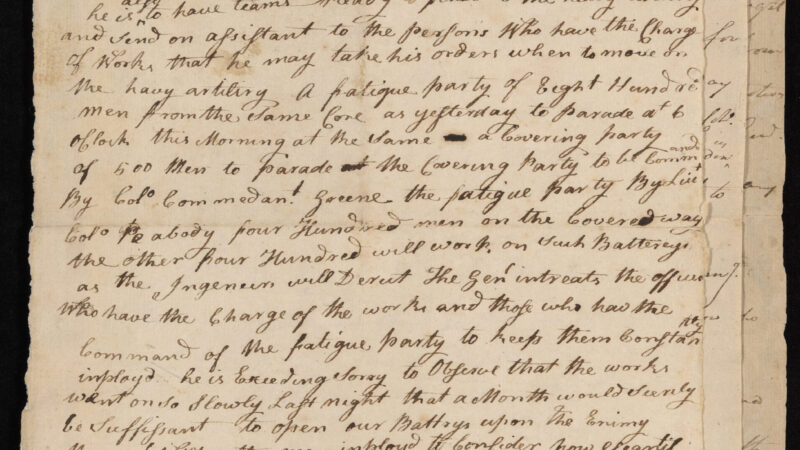 he is to have teams
and send on assistant to the persons Who have the Charge
of Works that he may take his orders when to move on
the havy artiliry A fatigue party of Eight Hundred
Men from the Same Core as yesterday to Parade at 6
oClock this Morning at the Same a Covering party
of 500 Men to parade the Covering Party to be Commanded
By Colo Commedant Greene the fatigue party By Liut
Colo Peabody four Hundred men on the Covered way
the other four Hundred will work on Such Battereys
as the Ingeneurs will Derect The Genl intreats the officers
Who have the Charge of the works and those who hav the
Command of the fatigue Party to keep them Constantly
inployd he is Exeeding Sorry to Observe that the works
went on so Slowly Last night that a Month would Scercly
be Suffissant to open our Battrys upon the Enimy
inployd to Consider how